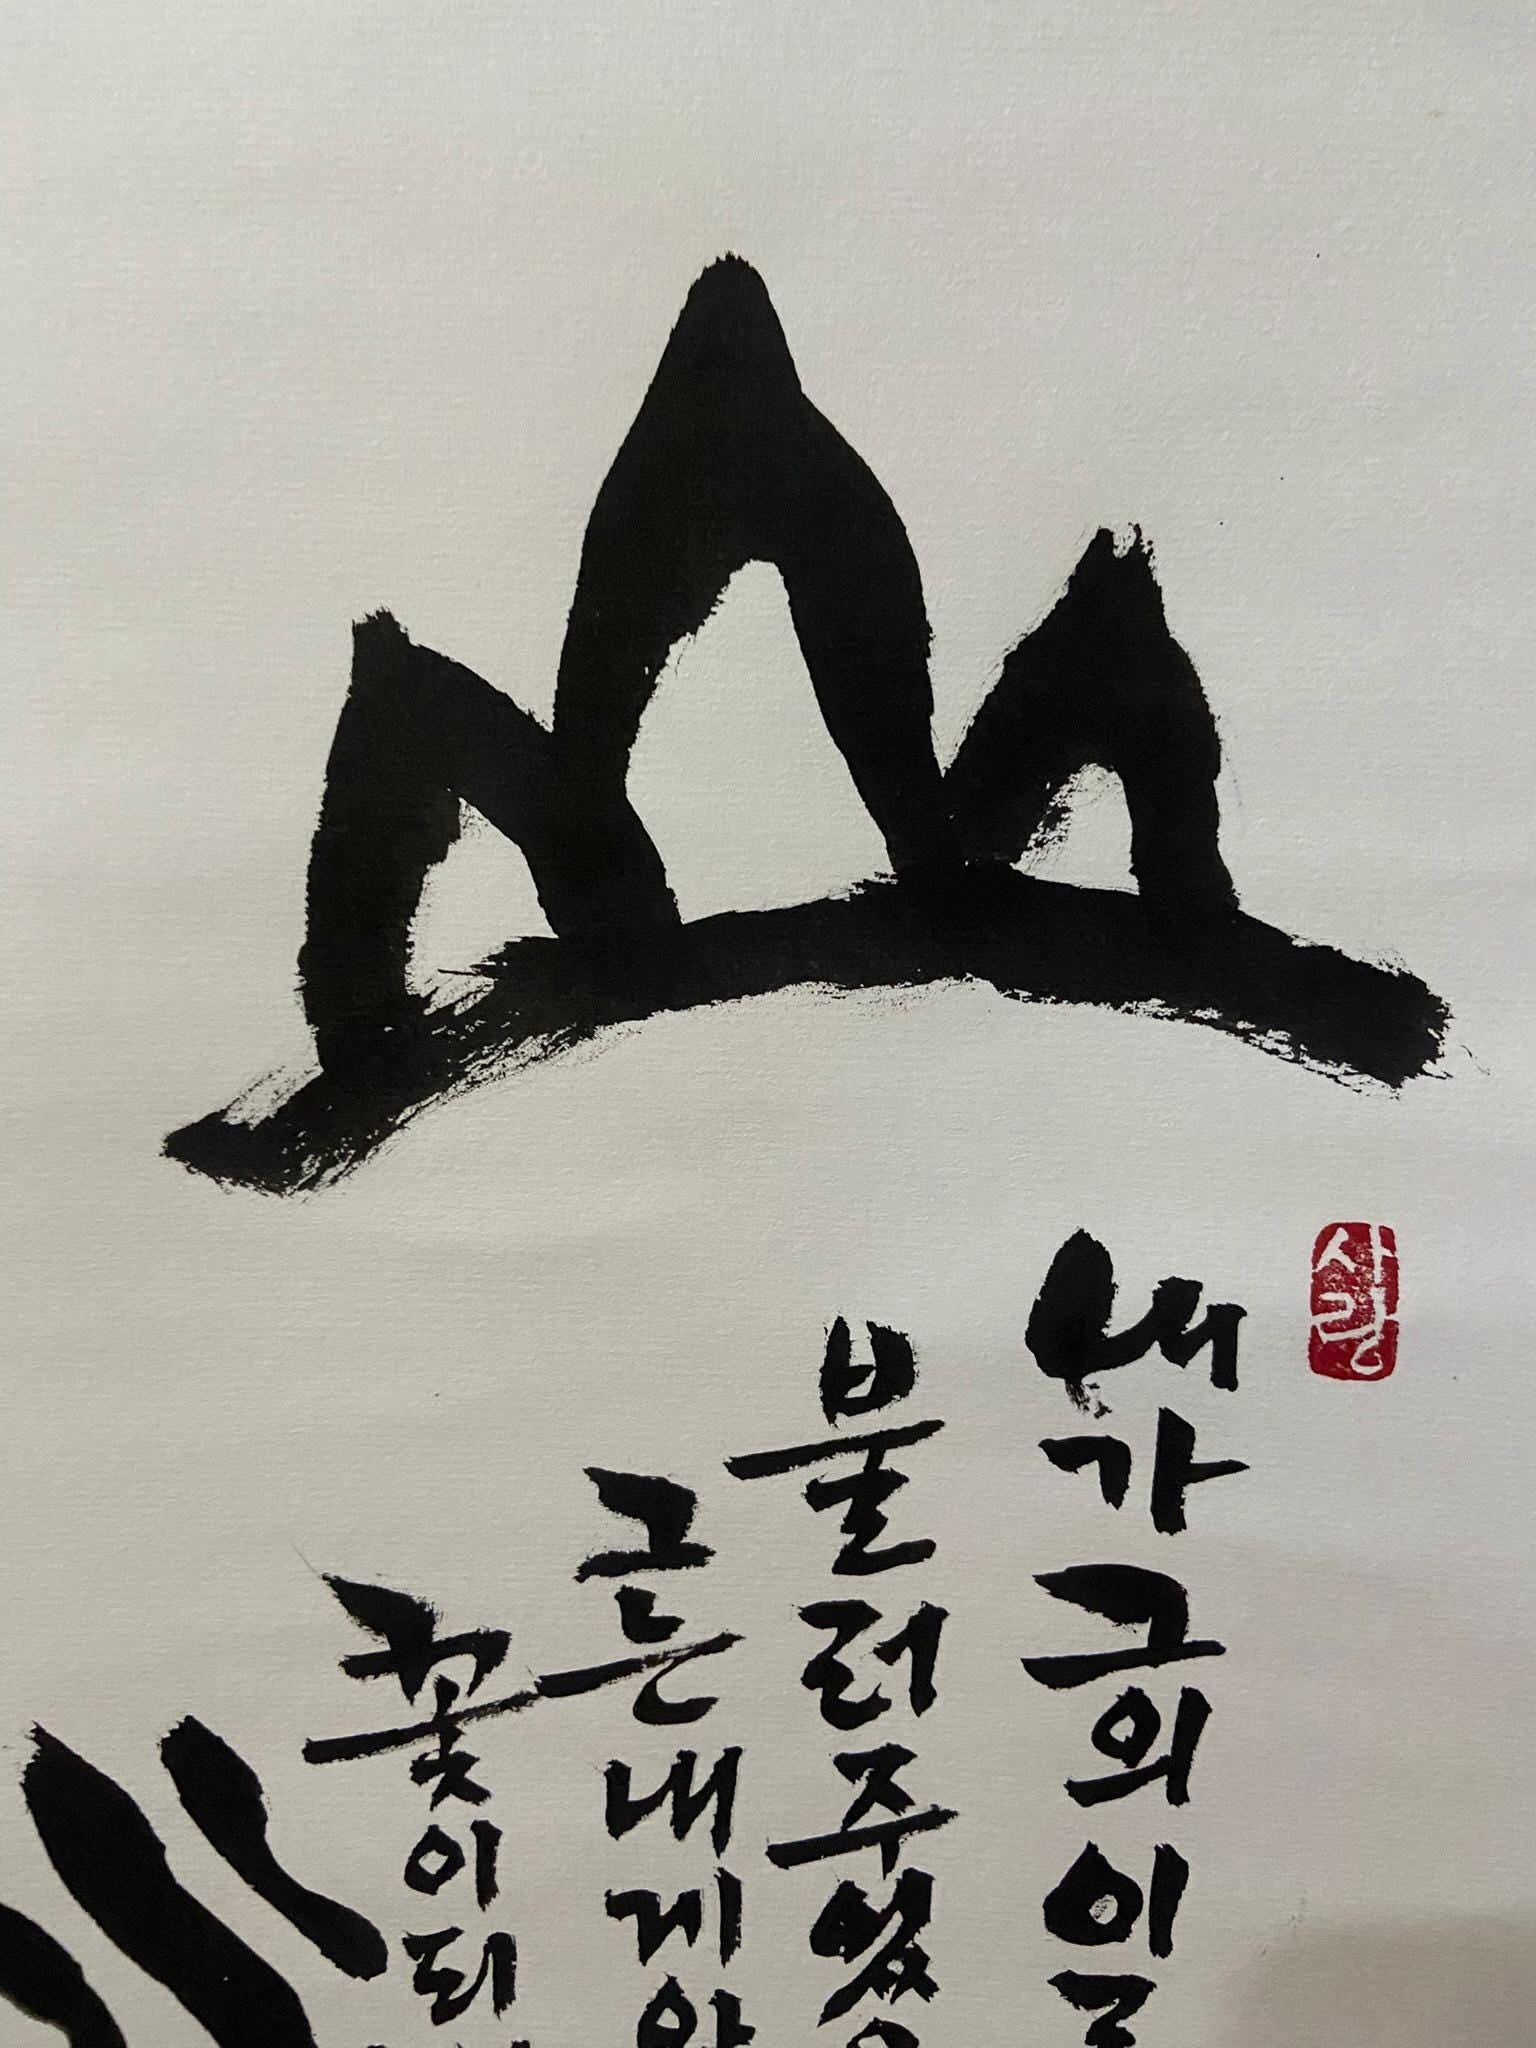 사랑
내가 그의 이
불러주었
그는 내게 와
꽃이 되